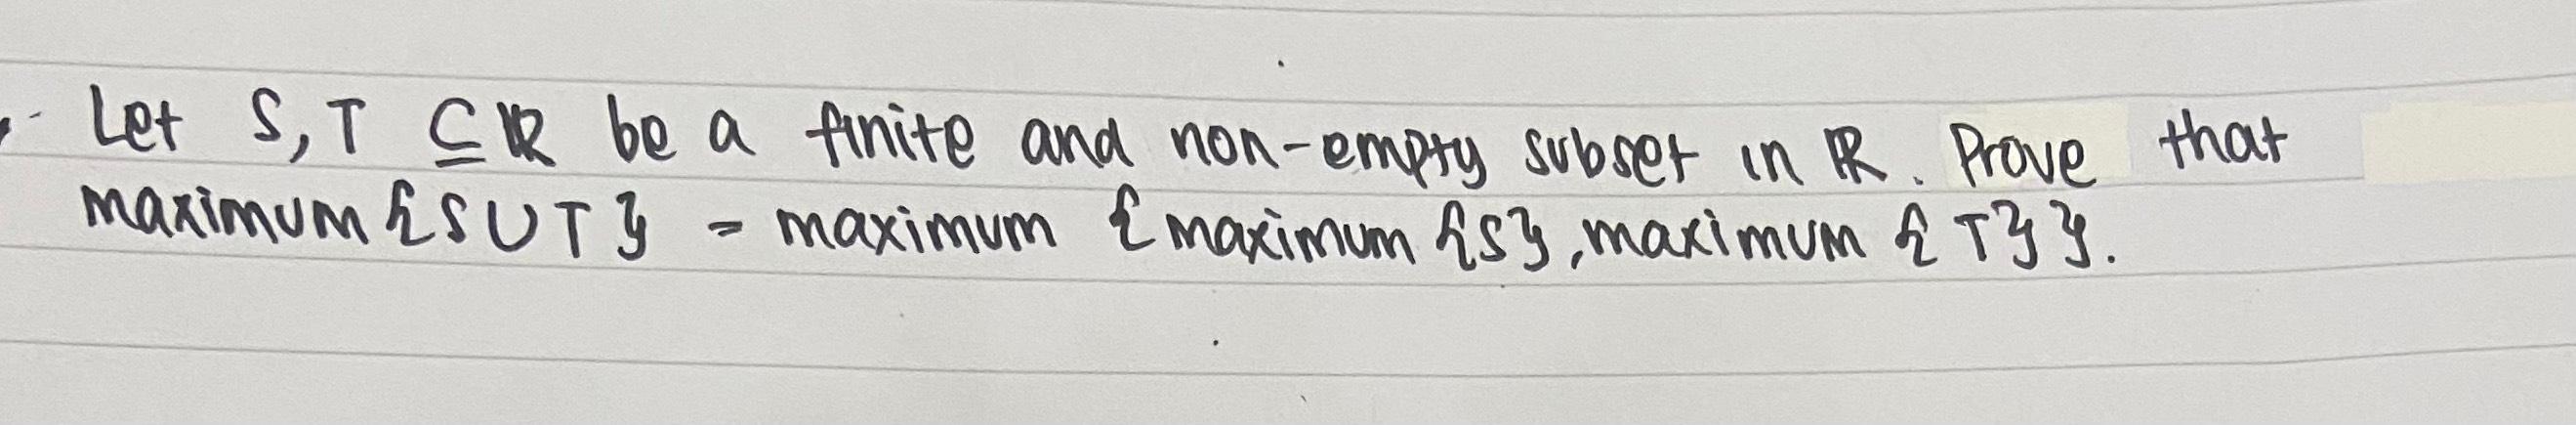 Let S, T ⊆ ℝ be a finite and non-empty subset in ℝ. Prove that
maximum {S ∪ T} = maximum {maximum {S}, maximum {T}}.